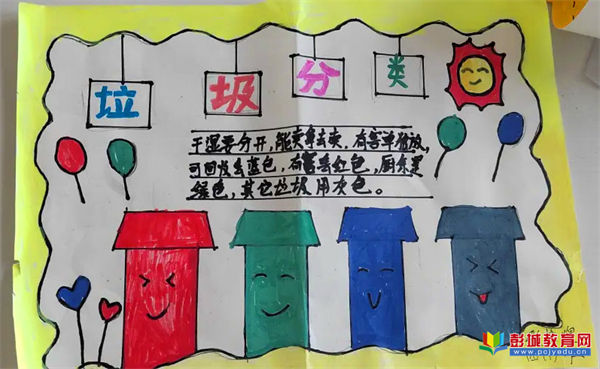 垃圾分类
干湿要分开,能卖拿去卖,有害单独放,
可回收丢蓝色,有害丢红色,厨余是
绿色,其它垃圾用灰色。
彭城教育网
www.pcjyedu.cn